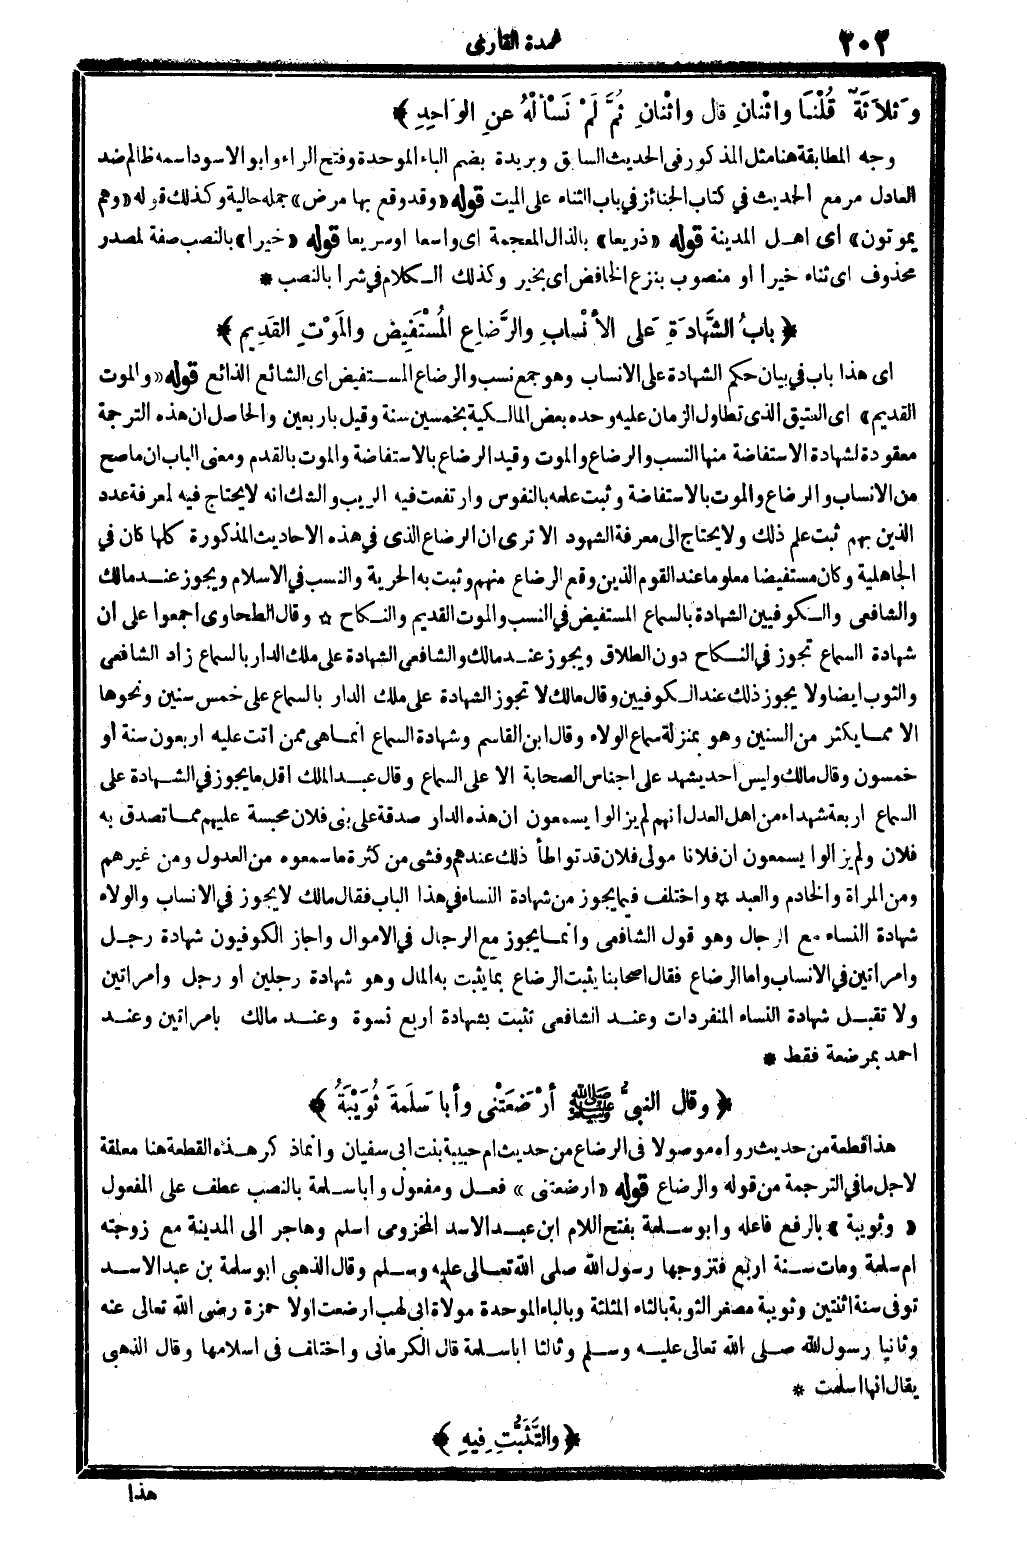 ٢٠٢
عمدة القارى
وَثَلاَثَةٌ قُلْنَا وَاثْنَانِ قال واثْنانِ ثُمَّ لَمْ نَسْأَلْهُ عنِ الوَاحِدِ ﴾
وجه المطابقة هنا مثل المذكور فى الحديث السابق وبريدة بضم الباء الموحدة وفتح الراء وابو الاسود اسمه ظالم ضد
العادل مر مع الحديث في كتاب الجنائز في باب الثناء على الميت قوله «وقد وقع بها مرض» جملة حالية وكذلك قوله «وهم
يموتون» اى اهل المدينة قوله «ذريعا» بالذال المعجمة اى واسعا او سريعا قوله «خيرا» بالنصب صفة لمصدر
محذوف اى ثناء خيرا او منصوب بنزع الخافض اى بخير وكذلك الكلام في شرا بالنصب *
﴿ بابُ الشَّهادَةِ عَلى الأنْسابِ والرَّضاعِ المُسْتَفِيضِ والمَوْتِ القَدِيمِ ﴾
اى هذا باب في بيان حكم الشهادة على الانساب وهو جمع نسب والرضاع المستفيض اى الشائع الذائع قوله «والموت
القديم» اى العتيق الذى تطاول الزمان عليه وحده بعض المالكية بخمسين سنة وقيل باربعين والحاصل ان هذه الترجمة
معقودة لشهادة الاستفاضة منها النسب والرضاع والموت وقيد الرضاع بالاستفاضة والموت بالقدم ومعنى الباب ان ماصح
من الانساب والرضاع والموت بالاستفاضة وثبت علمه بالنفوس وارتفعت فيه الريب والشك انه لا يحتاج فيه لمعرفة عدد
الذين بهم ثبت علم ذلك ولا يحتاج الى معرفة الشهود الا ترى ان الرضاع الذى في هذه الاحاديث المذكورة كلها كان في
الجاهلية وكان مستفيضا معلوما عند القوم الذين وقع الرضاع منهم وثبت به الحرية والنسب في الاسلام ويجوز عند مالك
والشافعى والكوفيين الشهادة بالسماع المستفيض في النسب والموت القديم والنكاح ☆ وقال الطحاوى اجمعوا على أن
شهادة السماع تجوز في النكاح دون الطلاق ويجوز عند مالك والشافعى الشهادة على ملك الدار بالسماع زاد الشافعى
والثوب ايضا ولا يجوز ذلك عند الكوفيين وقال مالك لا تجوز الشهادة على ملك الدار بالسماع على خمس سنين ونحوها
الا مما يكثر من السنين وهو بمنزلة سماع الولاء وقال ابن القاسم وشهادة السماع انما هى ممن اتت عليه اربعون سنة أو
خمسون وقال مالك وليس احد يشهد على اجناس الصحابة الا على السماع وقال عبد الملك اقل ما يجوز في الشهادة على
السماع اربعة شهداء من اهل العدل انهم لم يزالوا يسمعون ان هذه الدار صدقة على بنى فلان محبسة عليهم مما تصدق به
فلان ولم يزالوا يسمعون ان فلانا مولى فلان قد تواطأ ذلك عندهم وفشى من كثرة ما سمعوه من العدول ومن غيرهم
ومن المرأة والخادم والعبد ☆ واختلف فيما يجوز من شهادة النساء في هذا الباب فقال مالك لا يجوز في الانساب والولاء
شهادة النساء مع الرجال وهو قول الشافعى وانما يجوز مع الرجال في الاموال واجاز الكوفيون شهادة رجل
وامرأتين في الانساب واما الرضاع فقال اصحابنا يثبت الرضاع بما يثبت به المال وهو شهادة رجلين او رجل وامرأتين
ولا تقبل شهادة النساء المنفردات وعند الشافعى تثبت بشهادة اربع نسوة وعند مالك بامرأتين وعند
احمد بمرضعة فقط *
﴿ وقال النبيُّ ﷺ أرْضَعَتْنى وأبا سَلَمَةَ ثُوَيْبَةُ ﴾
هذا قطعة من حديث رواه موصولا فى الرضاع من حديث ام حبيبة بنت ابى سفيان وانما ذكر هذه القطعة هنا معلقة
لاجل ما في الترجمة من قوله والرضاع قوله «ارضعتنى» فعل ومفعول وابا سلمة بالنصب عطف على المفعول
«وثويبة» بالرفع فاعله وابو سلمة بفتح اللام ابن عبد الاسد المخزومى اسلم وهاجر الى المدينة مع زوجته
ام سلمة ومات سنة اربع فتزوجها رسول الله صلى الله تعالى عليه وسلم وقال الذهبى ابو سلمة بن عبد الاسد
توفى سنة اثنتين وثويبة مصغر الثوبة بالثاء المثلثة وبالباء الموحدة مولاة ابى لهب ارضعت اولا حمزة رضى الله تعالى عنه
وثانيا رسول الله صلى الله تعالى عليه وسلم وثالثا ابا سلمة قال الكرمانى واختلف فى اسلامها وقال الذهبى
يقال انها اسلمت *
﴿ والتَّثَبُّتِ فِيهِ ﴾
هذا